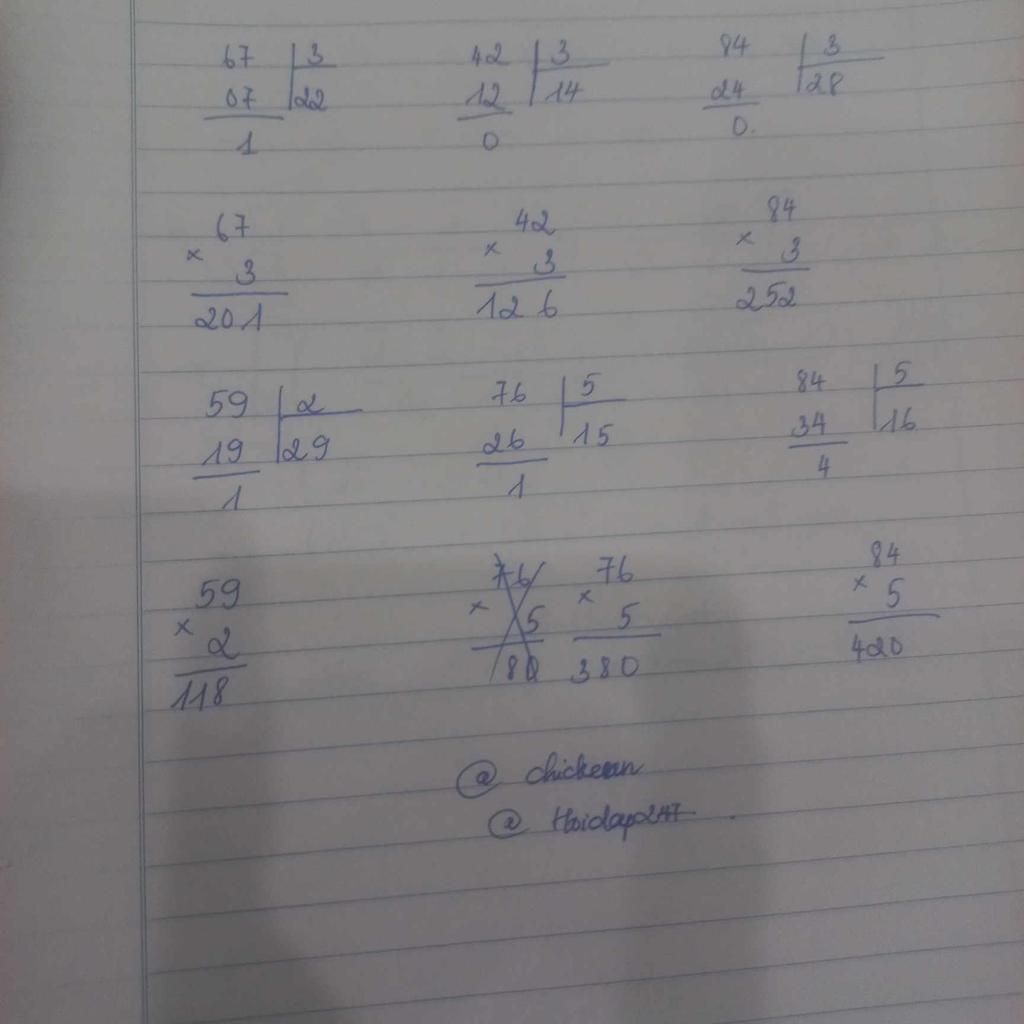 67 3 42 3 84 3
07 22 12 14 24 28
1 0 0.
67 42 84
× 3 × 3 × 3
201 126 252
59 2 76 5 84 5
19 29 26 15 34 16
1 1 4
59 76 76 84
× 2 × 5 × 5 × 5
118 380 420
@ chickeen
@ Hoidap247